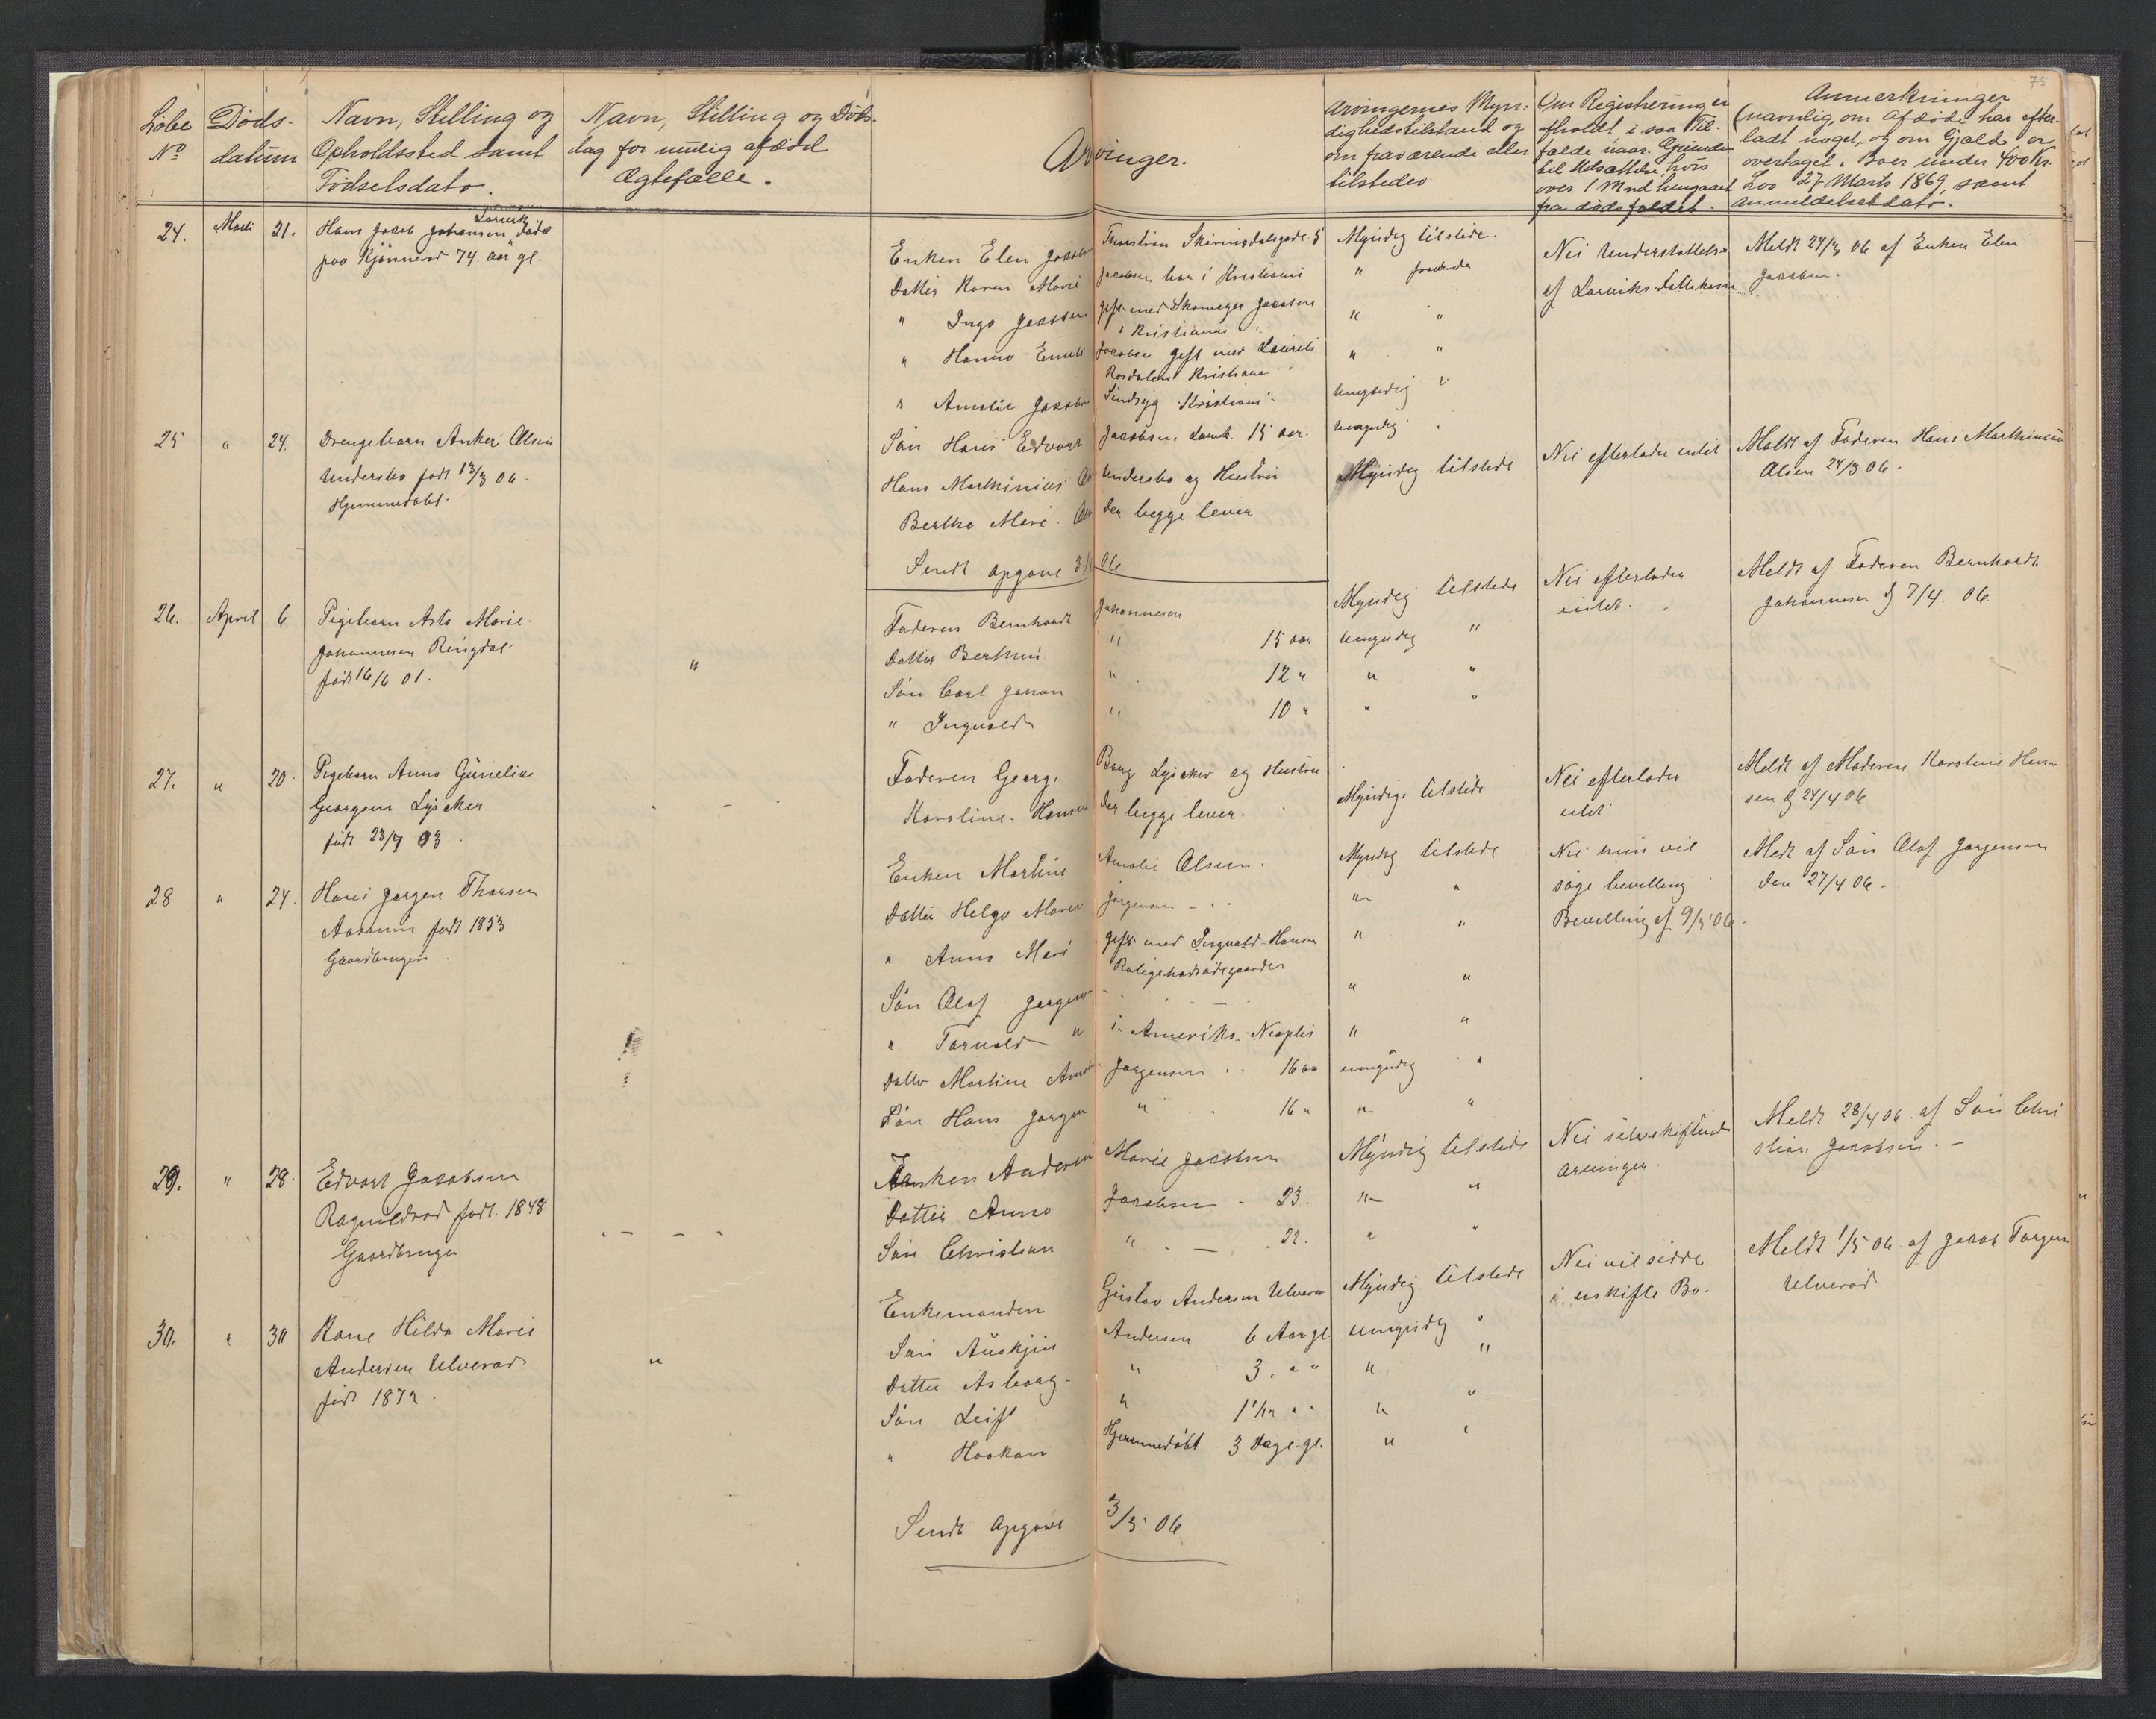 75
Løbe
No
Døds-
datum
Navn, Stilling og
Opholdssted samt
Fødselsdato.
Navn, Stilling og Døds-
dag for mulig afdød
Ægtefælle.
Arvinger.
Arvingernes Myn-
dighedstilstand og
om fraværende eller
tilstede
Om Registrering er
afholdt, i saa Til-
fælde naar. Grunden
til Udsættelse, hvis
over 1 Mnd hengaaet
fra dødsfaldet.
Anmerkninger
(navnlig, om Afdøde har efter-
ladt noget, og om Gjæld er
overtaget. Boer under 400 Kr.
Lov 27 Marts 1869, samt
anmeldelsesdato.
24. Marts 21. Hans Jacob Johansen døde
Larvik
paa Kjønnerød 74 aar gl.
Enken Elen Jacobsen Skiringsdalsgade 5 Myndig tilstede.
Datter Karen Marie Jacobsen bor i Kristiania "
" Inga Jacobsen gift med Skomager Jacobsen " "
i Kristiania
" Hanna Emilie Jacobsen gift med Lauritz " "
Rosdalen Kristiania
" Amalie Jacobsen Sindsyg Kristiania umyndig "
Søn Hans Edvart Jacobsen Larvik 15 aar. umyndig
Nei Understøttelse
af Larviks Fattikasse
Meldt 24/3 06 af Enken Elen
Jacobsen.
25 " 24. Drengebarn Anker Olsen
Undersbo født 13/3 06.
Hjemmedøbt.
Hans Marthinius Undersbo og Hustru
Bertha Marie. der begge lever
Myndig tilstede
Nei efterlader intet
Meldt af Faderen Hans Marthinius
Olsen 24/3 06.
Sendt opgave 3/4 06
26. April 6 Pigebarn Asta Marie
Johannesen Ringdal
født 16/6 01.
"
Faderen Bernhardt Johannesen Myndig tilstede
Datter Berthine " 15 aar umyndig "
Søn Carl Johan " 12 " " "
" Ingvald " 10 " " "
Nei efterlader
intet.
Meldt af Faderen Bernhardt
Johannesen d 7/4. 06
27. " 20. Pigebarn Anna Gunelia
Georgsen Lysaker
født 23/7 03
Faderen Georg Berg Lysaker og Hustru
Karoline Hansen der begge lever.
Myndige tilstede
Nei efterlader
intet
Meldt af Moderen Karoline Han
sen d 24/4 06
28 " 24. Hans Jørgen Thorsen
Aasrum født 1853
Gaardbruger
Enken Martine Amalie Olsen. Myndig tilstede
Datter Helga Marie Jørgensen " "
" Anna Marie gift med Ingvald Hansen " "
Søn Olaf Jørgensen " "
" Torvald " i Amerika " "
Datter Martine Amalie Jørgensen 16 aar umyndig "
Søn Hans Jørgen " 16 " " "
Nei hun vil
søge bevilling
Bevilling af 9/5 06.
Meldt af Søn Olaf Jørgensen
den 27/4 06.
29. " 28. Edvart Jacobsen
Ragnildrød født. 1848
Gaardbruger
Enken Andrea Marie Jacobsen Myndig tilstede
Datter Anna Jacobsen - 23. " "
Søn Christian " 22. " "
Nei selvskiftende
arvinger
Meldt 28/4 06. af Søn Chri
stian Jacobsen. -
30. " 30 Kone Hilda Marie
Andersen Ulverød
født 1872.
"
Enkemanden Gustav Andersen Ulverød Myndig tilstede
Søn Auskjin Andersen 6 Aar gl umyndig "
Datter Asborg " 3. " " " "
Søn Leift " 1 1/2 " " " "
" Haakan Hjemmedøbt 3 Dage gl. " "
Nei vil sidde
i uskifte Bo.
Meldt 1/5 06. af Jacob Torgersen
Ulverød
Sendt Opgave 3/5 06